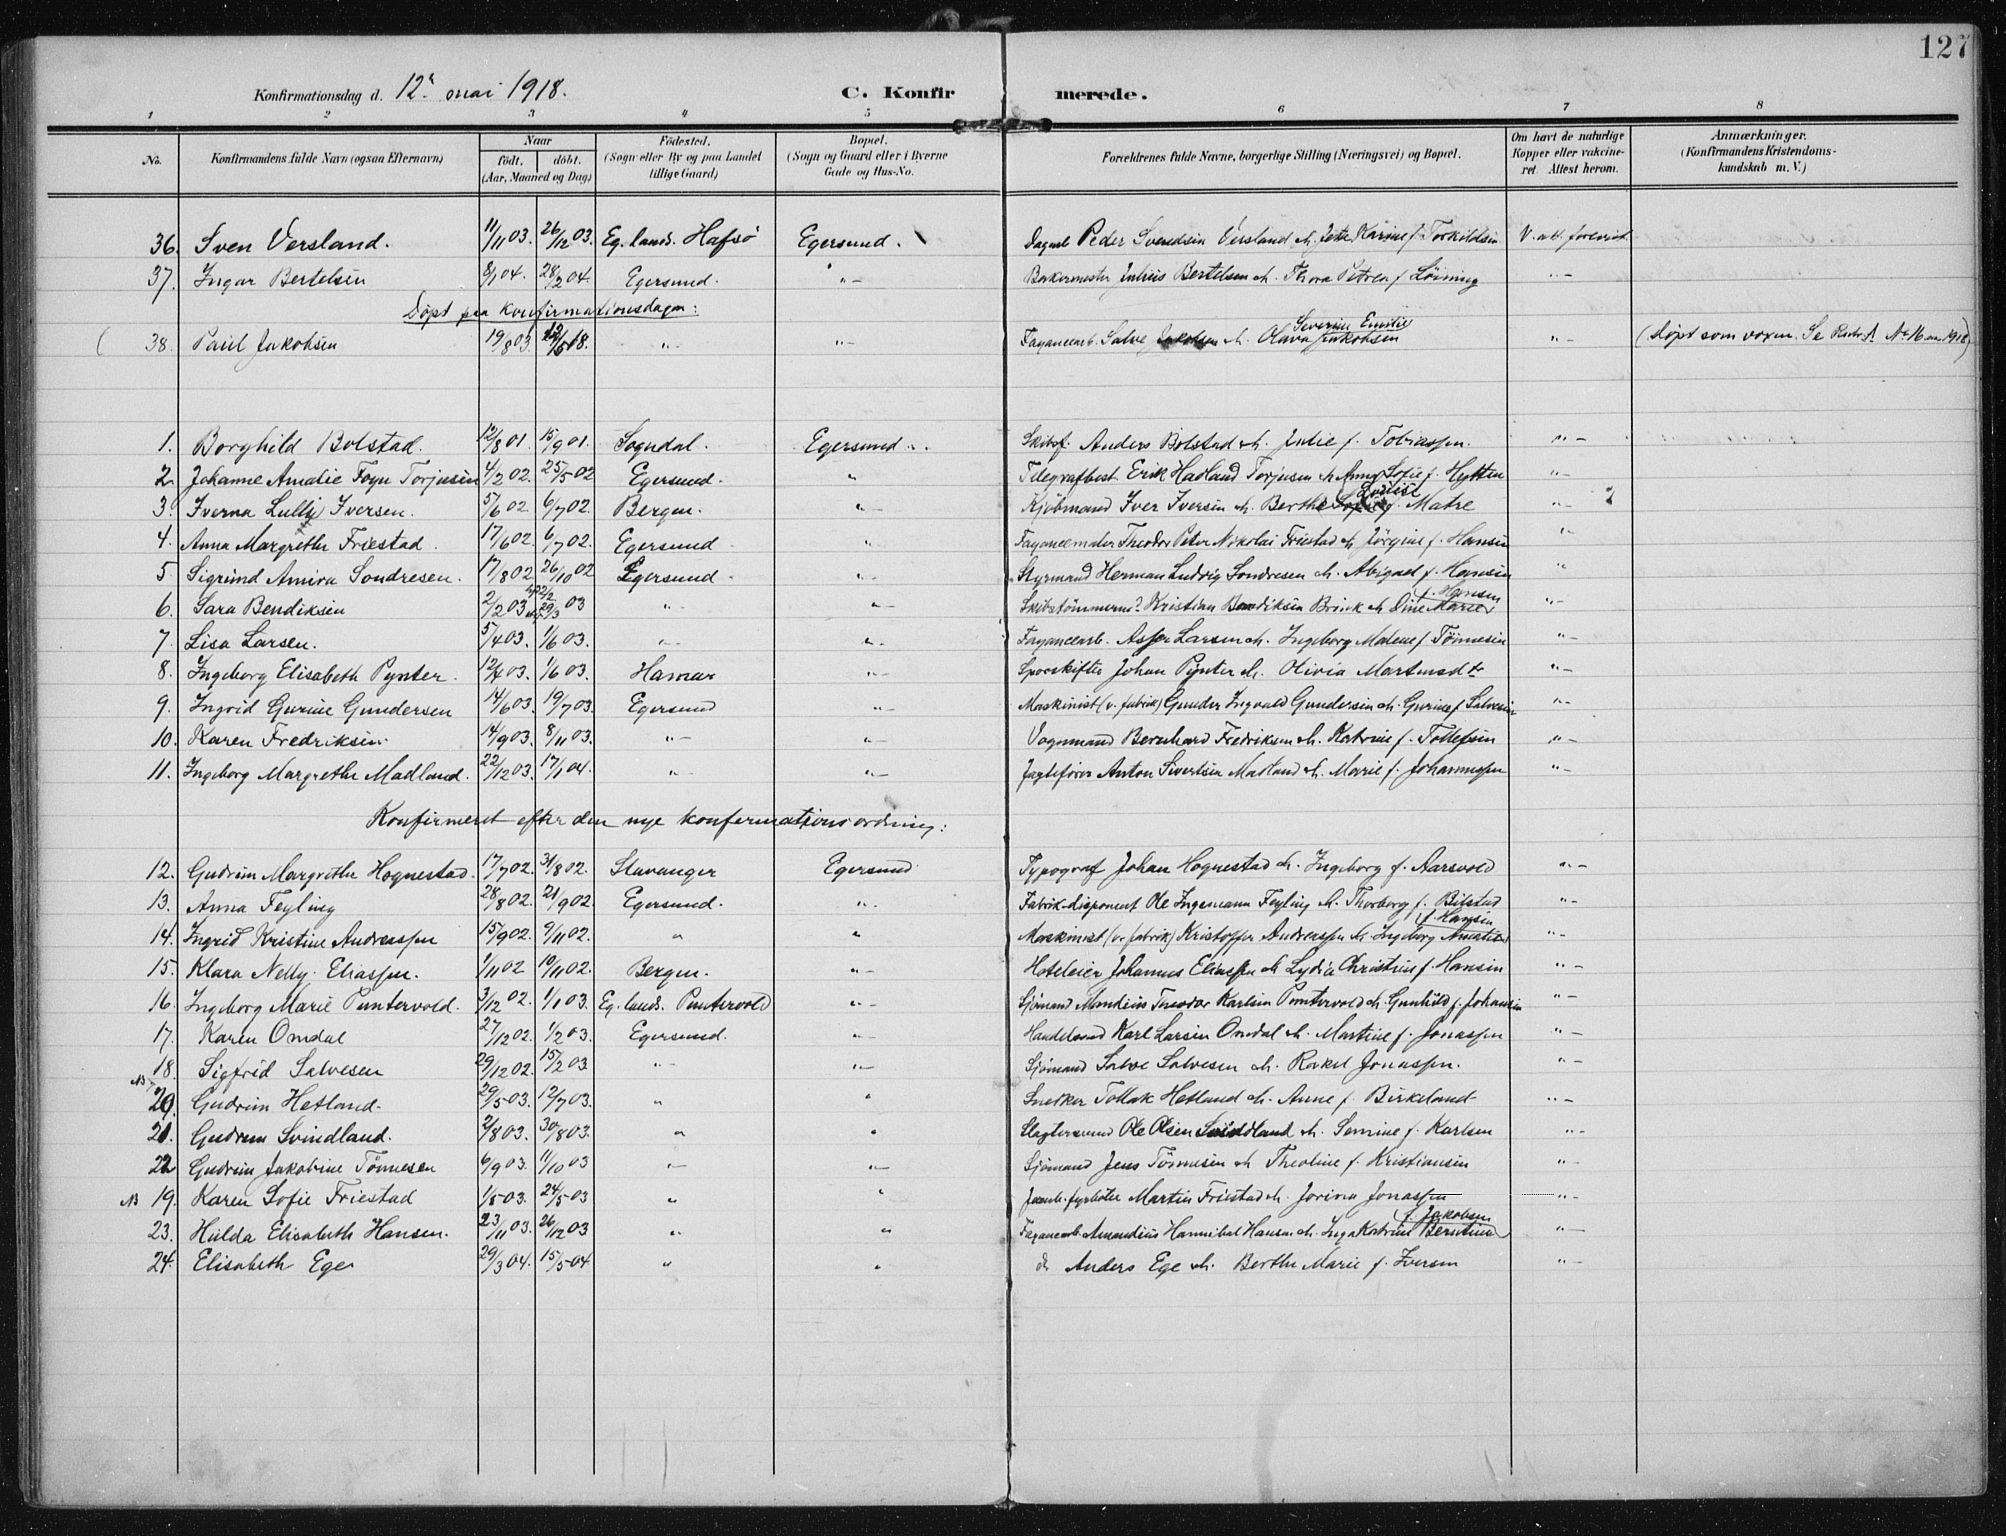 127
Konfirmationsdag d. 12' mai 1918. C. Konfirmerede.
1 2 3 4 5 6 7 8
No. Konfirmandens fulde Navn (ogsaa Efternavn) Naar født. døbt. (Aar, Maaned og Dag) Fødested. (Sogn eller By og paa Landet tillige Gaard) Bopæl. (Sogn og Gaard eller i Byerne Gade og Hus-No. Forældrenes fulde Navne, borgerlige Stilling (Næringsvei) og Bopæl. Om havt de naturlige Kopper eller vakcineret. Attest herom. Anmærkninger. (Konfirmandens Kristendomskundskab m. V.)
36. Sven Versland. 11/11 03. 26/12 03. Eg. lands. Hafsø Egersund. Dagarb. Peder Svendsen Versland & Jette Karine f. Torkildsen V. att. forevist
37. Ingar Bertelsen 8/1 04. 28/2 04. Egersund. "– Bakermester Julius Bertelsen & Thora Petrea f. Löining "–
Døpt paa konfirmationsdagen:
38. Paul Jakobsen 19/8 03. 12/5 18. "– "– Fayancearb. Salve Jakobsen & Olava Severine Emilie Jakobsen "– (Døpt som voxen. Se Rackr. A No 16 mai 1918)
1. Borghild Bolstad. 12/8 01. 15/9 01. Sogndal. Egersund. Skibsf. Anders Bolstad & Julie f. Tobiassen. "–
2. Johanne Amalie Foyn Torjusen 4/2 02. 25/5 02 Egersund. " Telegrafbest. Erik Hadland Torjusen & Anna Sofie f. Hytten "–
3. Iverna Lulli Iversen. 5/6 02. 6/7 02. Bergen. "– Kjöbmand Iver Iversen & Berthe Lovise f. Matre "–
4. Anna Margrethe Friestad. 17/6 02. 6/7 02. Egersund "– Fayancemaler Theodor Peter Nikolai Friestad & Jörgine f. Hansen "–
5. Sigrund Amira Sondresen. 17/8 02. 26/10 02 Egersund. "– Styrmand Herman Ludvig Sondresen & Abigael f. Hansen "
6. Sara Bendiksen 2/2 03 22/2 29/3 03 "– "– Skibstömmerm? Kristian Bendiksen Brink & Dine Marie f. Hansen "–
7. Lisa Larsen. 5/4 03. 1/6 03. "– "– Fayancearb. Asser Larsen & Ingeborg Malene f. Tönnesen "–
8. Ingeborg Elisabeth Pynter. 12/4 03. 1/6 03. Hamar "– Sporskifter Johan Pynter & Olivia Martinsdtr "–
9. Ingrid Gurine Gundersen 14/6 03. 19/7 03. Egersund "– Maskinist (v. fabrik) Gunder Ingvald Gundersen & Gurine f. Salvesen "–
10. Karen Fredriksen. 14/9 03. 8/11 03. "– "– Vognmand Bernhard Fredriksen & Katrine f. Tollefsen "–
11. Ingeborg Margrethe Madland. 22/12 03. 17/1 04. "– "– Jagtefører Anton Sivertsen Madland & Marie f. Johannessen "–
Konfirmeret efter den nye konfirmationsordning:
12. Gudrun Margrethe Hognestad. 17/7 02. 31/8 02. Stavanger Egersund Typograf Johan Hognestad & Ingeborg f. Aarsvold "–
13. Anna Feyling 28/8 02. 21/9 02. Egersund. "– Fabrik-disponent Ole Ingemann Feyling & Thorborg f. Bilstad "–
14. Ingrid Kristine Andreassen 15/9 02. 9/11 02. " " Maskinist (v. fabrik) Kristoffer Andreassen & Ingeborg Amalie f. Hansen "–
15. Klara Nelly Eliassen. 1/11 02 10/11 02. Bergen. "– Hoteleier Johannes Eliassen & Lydia Christine f. Hansen "–
16. Ingeborg Marie Puntervold. 3/12 02. 1/1 03. Eg. lands. Puntervold "– Sjömand Mondius Theodor Karlsen Puntervold & Gunhild f. Johansen "–
17. Karen Omdal 27/12 02. 1/2 03. Egersund. "– Handelsmd Karl Larsen Omdal & Martine f. Jonassen "–
18. Sigfrid Salvesen 29/12 02. 15/2 03 "– "– Sjömand Salve Salvesen & Rakel Jonassen. "–
NB 20. Gudrun Hetland. 29/5 03. 12/7 03. " " Snekker Tollak Hetland & Anne f. Birkeland "–
21. Gudrun Svindland. 2/8 03. 30/8 03. " " Slagtersvend Ole Olsen Svindland & Semine f. Karlsen "–
22 Gudrun Jakobine Tönnesen 6/9 03. 11/10 03 "– "– Sjömand Jens Tönnesen & Theoline f. Kristiansen "–
NB 19. Karen Sofie Friestad 1/5 03. 24/5 03 " " Jernb.-fyrbøter Martin Friestad & Jorina Jonassen "–
23. Hulda Elisabeth Hansen. 23/11 03. 26/12 03 " " Fayancearb. Amandius Hannibal Hansen & Inga Katrine Berntine f. Jakobsen "–
24. Elisabeth Ege 29/3 04. 15/5 04. " " do Anders Ege & Berthe Marie f. Iversen "–